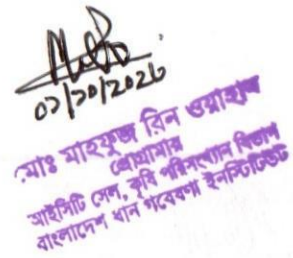 মোঃ মাহফুজ বিন ওয়াহাব
প্রোগ্রামার
আইসিটি সেল, কৃষি পরিসংখ্যান বিভাগ
বাংলাদেশ ধান গবেষণা ইনস্টিটিউট